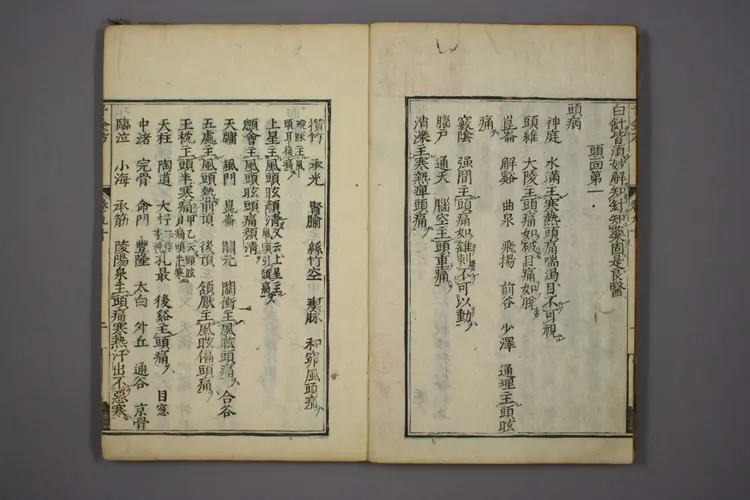 白針皆須妙解知針知藥固是良醫
頭面第一
頭病
神庭 水溝主寒熱頭痛喘渴目不可視
頭維 大陵主頭痛如破目痛如脫
崑崙 解谿 曲泉 飛揚 前谷 少澤 通理主頭眩
痛
竅陰 强間主頭痛如錐刺不可以動
腦戶 通天 腦空主頭重痛
消濼主寒熱痺頭痛
攢竹 承光 腎腧 絲竹空 和窌風頭痛
瘈脉主風
頭耳後痛
上星主風頭眩顏清
顖會主風頭眩頭痛顏清
天牖 風門 崑崙 關元 關衝主風眩頭痛 合谷
五處主風頭熱前頂 後頂 頷厭主風眩偏頭痛
玉枕主頭半寒痛
天柱 陶道 大杼 孔最 後谿主頭痛 目窓
中渚 完骨 命門 豐隆 太白 外丘 通谷 京骨
臨泣 小海 承筋 陵陽泉主頭痛寒熱汗出不惡寒